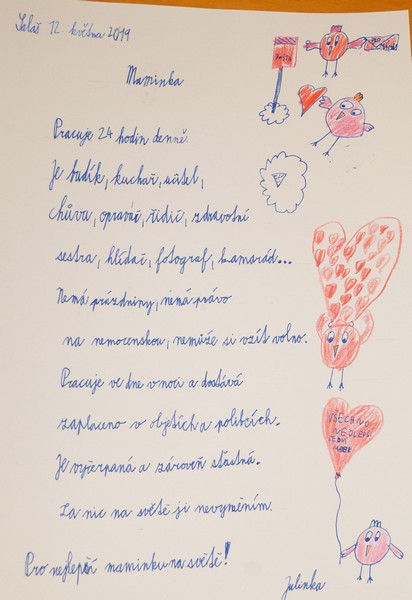 Salaš 12. května 2019
Maminka
Pracuje 24 hodin denně.
Je budík, kuchař, učitel,
chůva, opravář, řidič, zdravotní
sestra, hlídač, fotograf, kamarád...
Nemá prázdniny, nemá právo
na nemocenskou, nemůže si vzít volno.
Pracuje ve dne v noci a dostává
zaplaceno v objetích a polibcích.
Je vyčerpaná a zároveň šťastná.
Za nic na světě ji nevyměním.
Pro nejlepší maminku na světě!
Julinka
Pošta
VŠECHNO
NEJLEPŠÍ